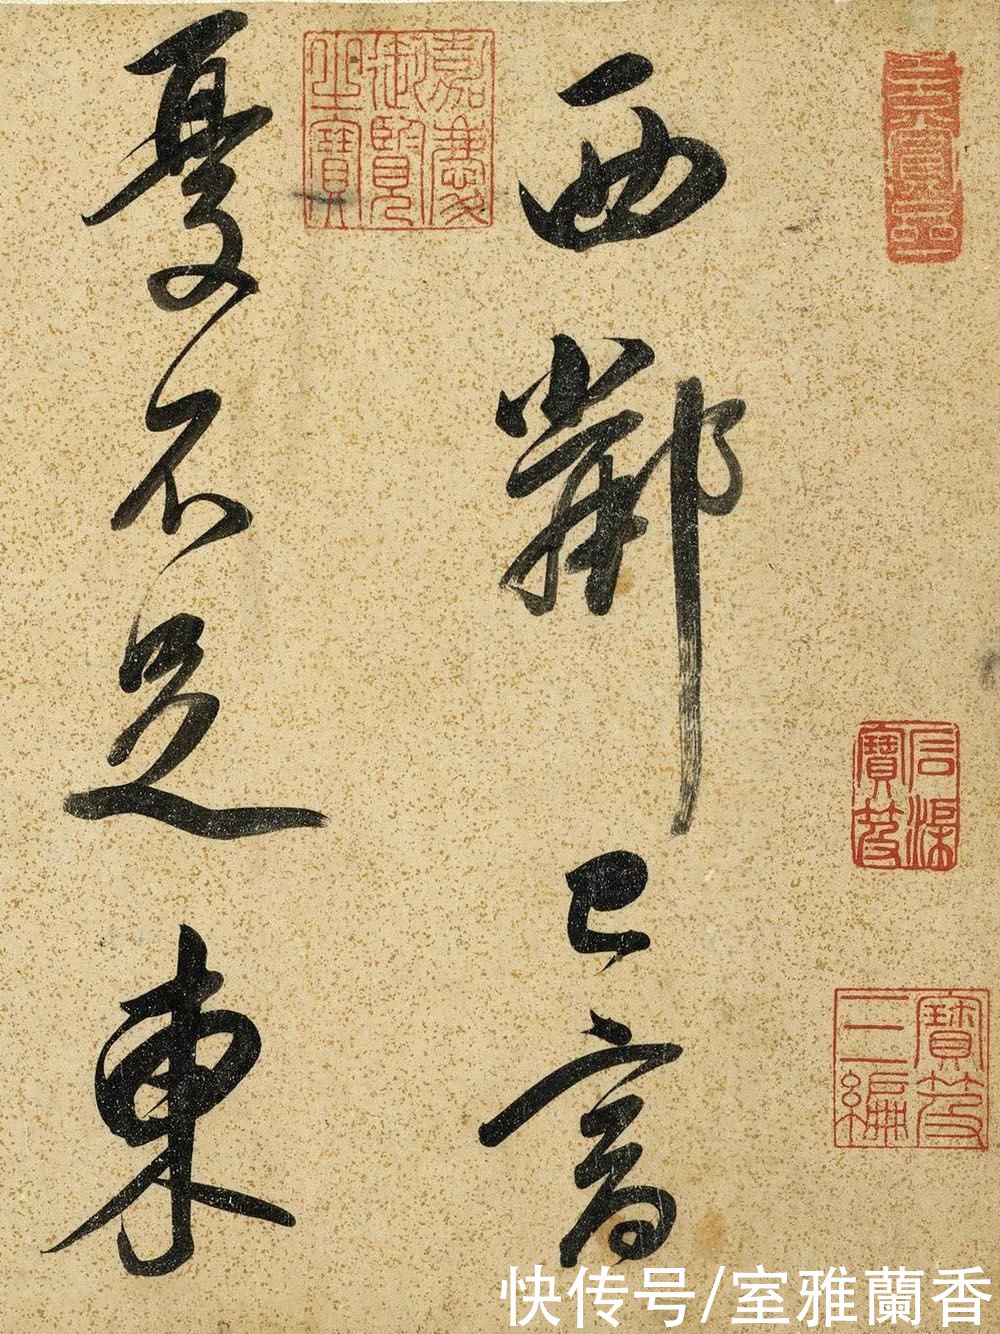 西鄰已富
憂不足東
嘉慶御覽之寶
石渠寶笈
寶笈三編
快传号/室雅蘭香